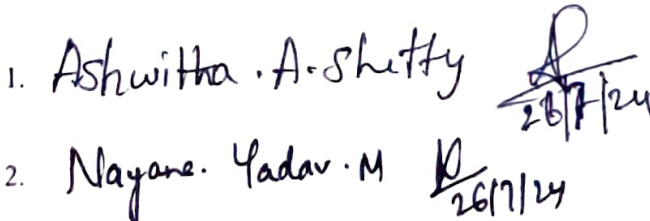 1. Ashwitha . A. Shetty 26/7/24
2. Nayana. Yadav . M 26/7/24